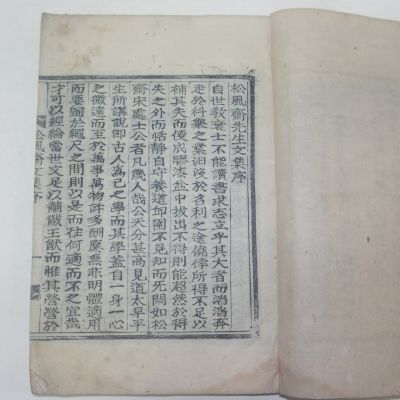 松風齋先生文集序
自世敎衰士不能讀書求志立乎其大者而滔滔奔
走於科擧之業汨沒於名利之途僥倖所得不足以
補其失而便成膠漆盆中拔出不得則能超然於得
失之外而恬靜自守養道邱園不見知而无悶如松
齋宋處士公者凡幾人哉公天分甚高見道太早平
生所講說卽古人爲己之學而其學蓋自一身一心
之微遠而至於萬事萬物許多酬應無非明體適用
而要歸於繩尺之間則以是而在何適而不之宜哉
才可以經綸當世文足以黼黻王猷而惟其營營於
松風齋文集序 一